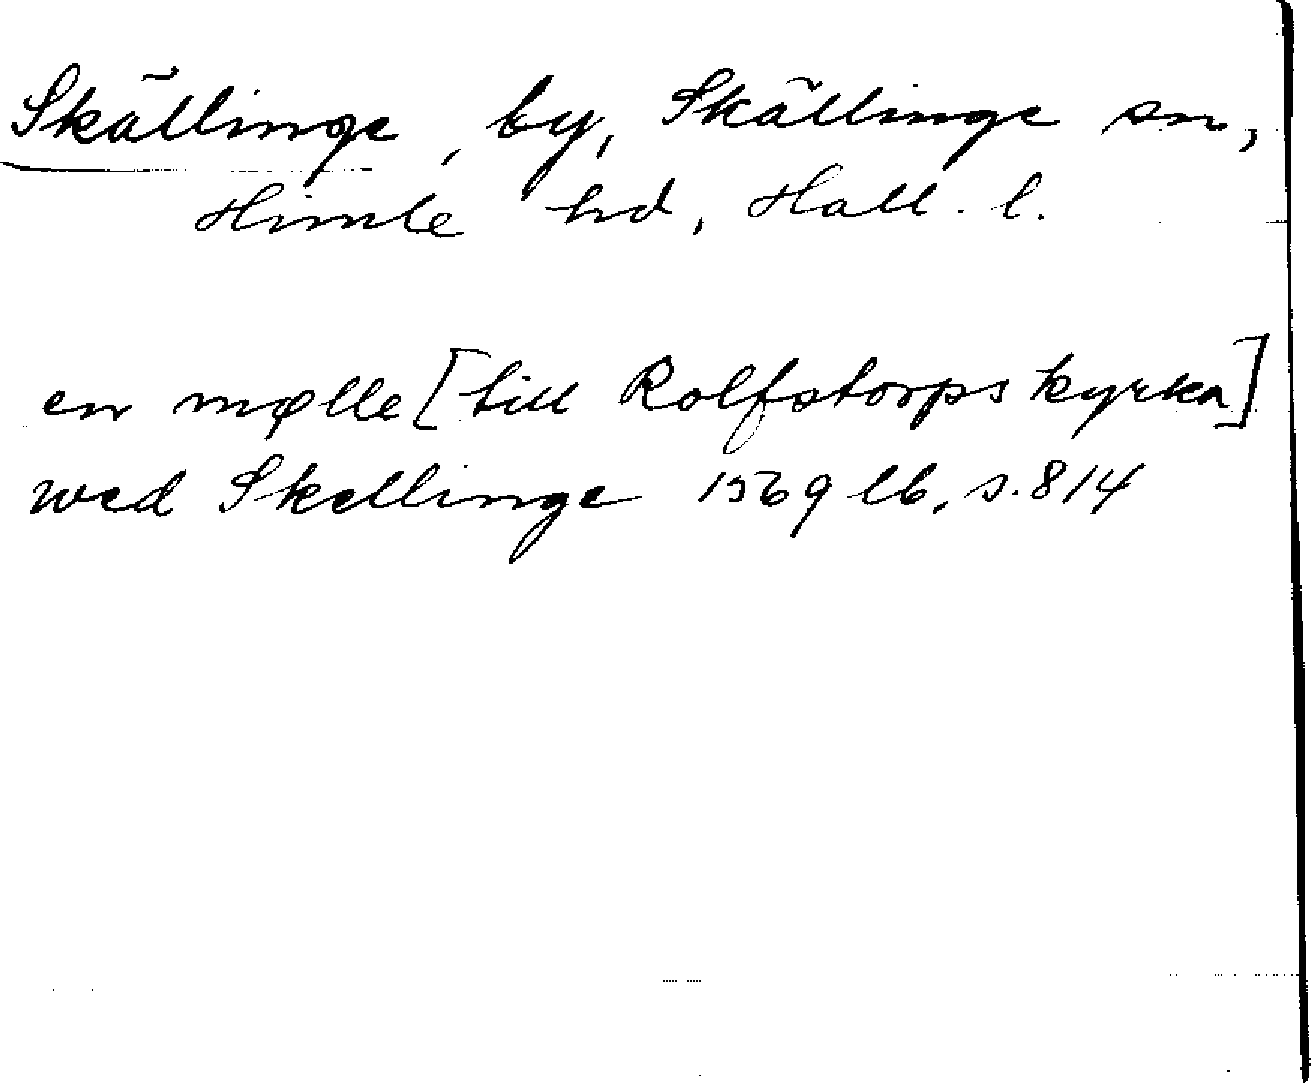 Skällinge, by, Skällinge sn,
Himle hd, Hall. l.
en mølle [till Rolfstorps kyrka]
wed Skellinge 1569 lb. s. 814